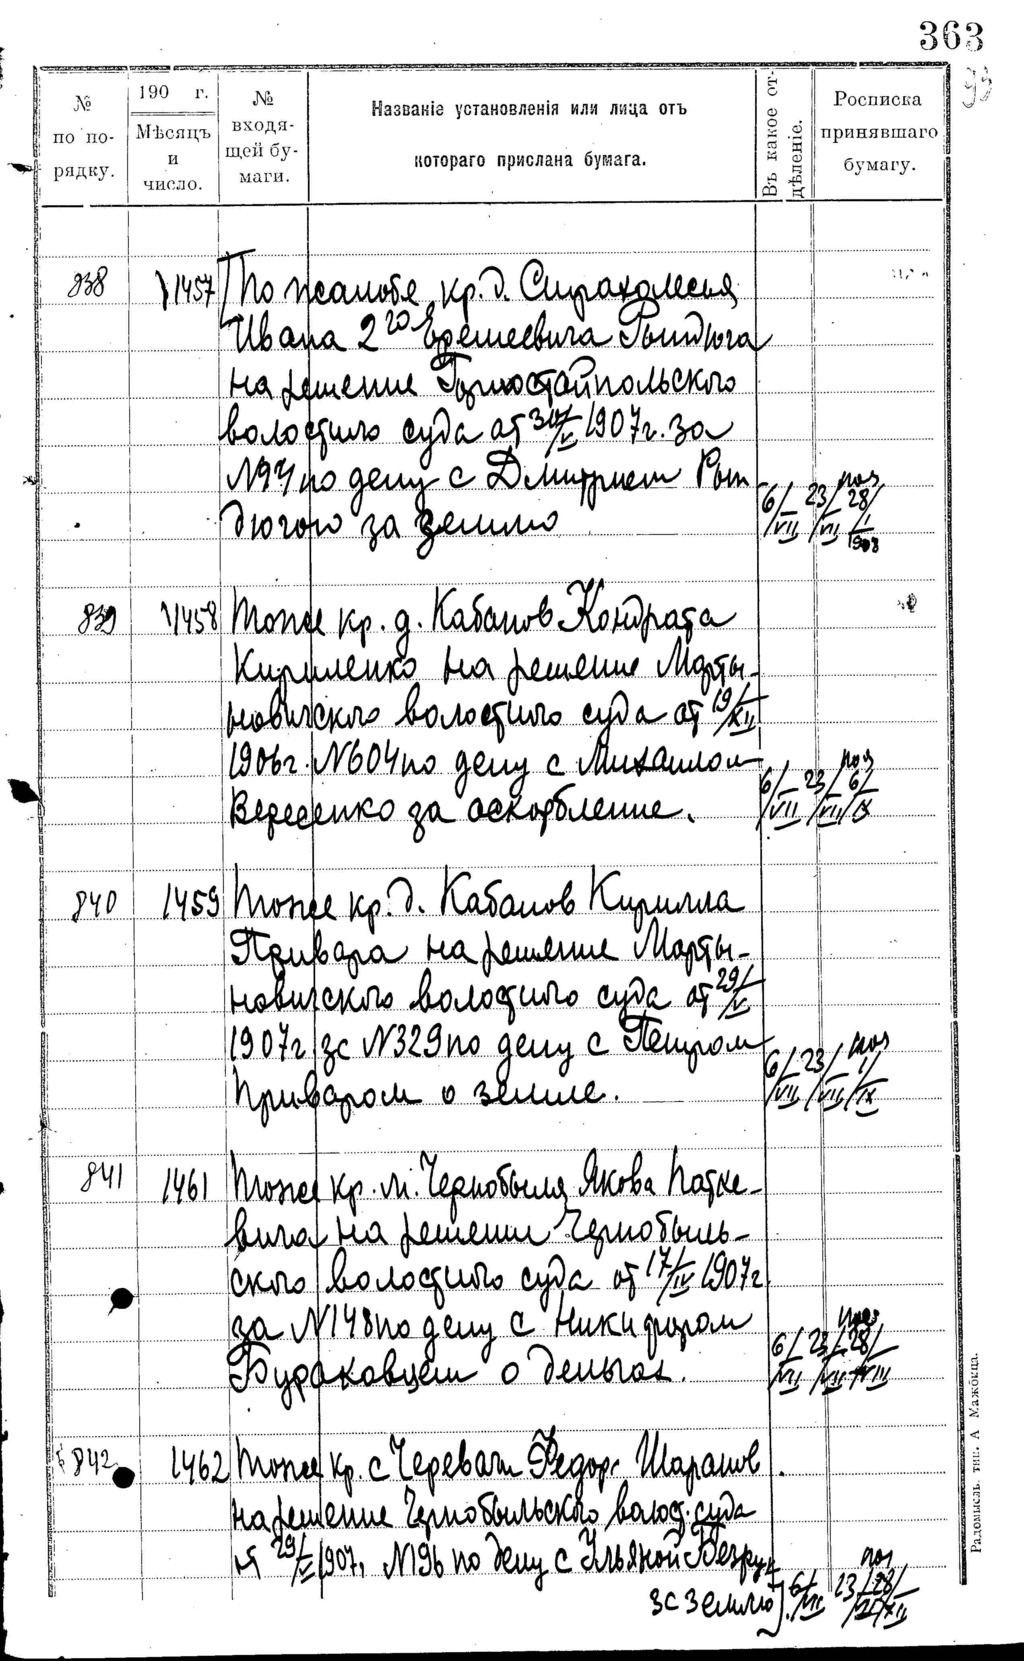 363
93
№ по порядку.
190 г. Мѣсяцъ и число.
№ входящей бумаги.
Названіе установленія или лица отъ котораго прислана бумага.
Въ какое отдѣленіе.
Росписка принявшаго бумагу.
838 1457 По жалобе кр. д. Страхолесья
Ивана 2го Еремеевича Рындюга
на решение Горностайпольского
волостного суда от /V 1907г. за
по делу с Дмитрием Рын
дюгою за землю 6/VII 23/VII 28/I 1908
839 1458 Тоже кр. д. Кабанов Кондрата
Кириленко на решение Марты-
новичского волостного суда от 19/XII
1906г. N604 по делу с Михаилом
Вересенко за оскорбление. 6/VII 23/VII 6/IX
840 1459 Тоже кр. д. Кабанов Кирилла
Привара на решение Марты-
новичского волостного суда от 29/V
1907г за N329 по делу с Петром
Приваром о земле. 6/VII 23/VII 1/IX
841 1461 Тоже кр. м. Чернобыля Якова Патке-
вича на решении Чернобыль-
ского волостного суда от 17/IV 1907г
за N148 по делу с Никифором
Бураковцем о деньгах. 6/VII 23/VII 28/VIII
842 1462 Тоже кр. с Черевач Федор Шарапов
на решение Чернобыльского волос. суда
29/V 1907, N96 по делу с Ульяной Безрук
за землю. 6/VII 23 28
Радомысль. тип. А Мажбица.